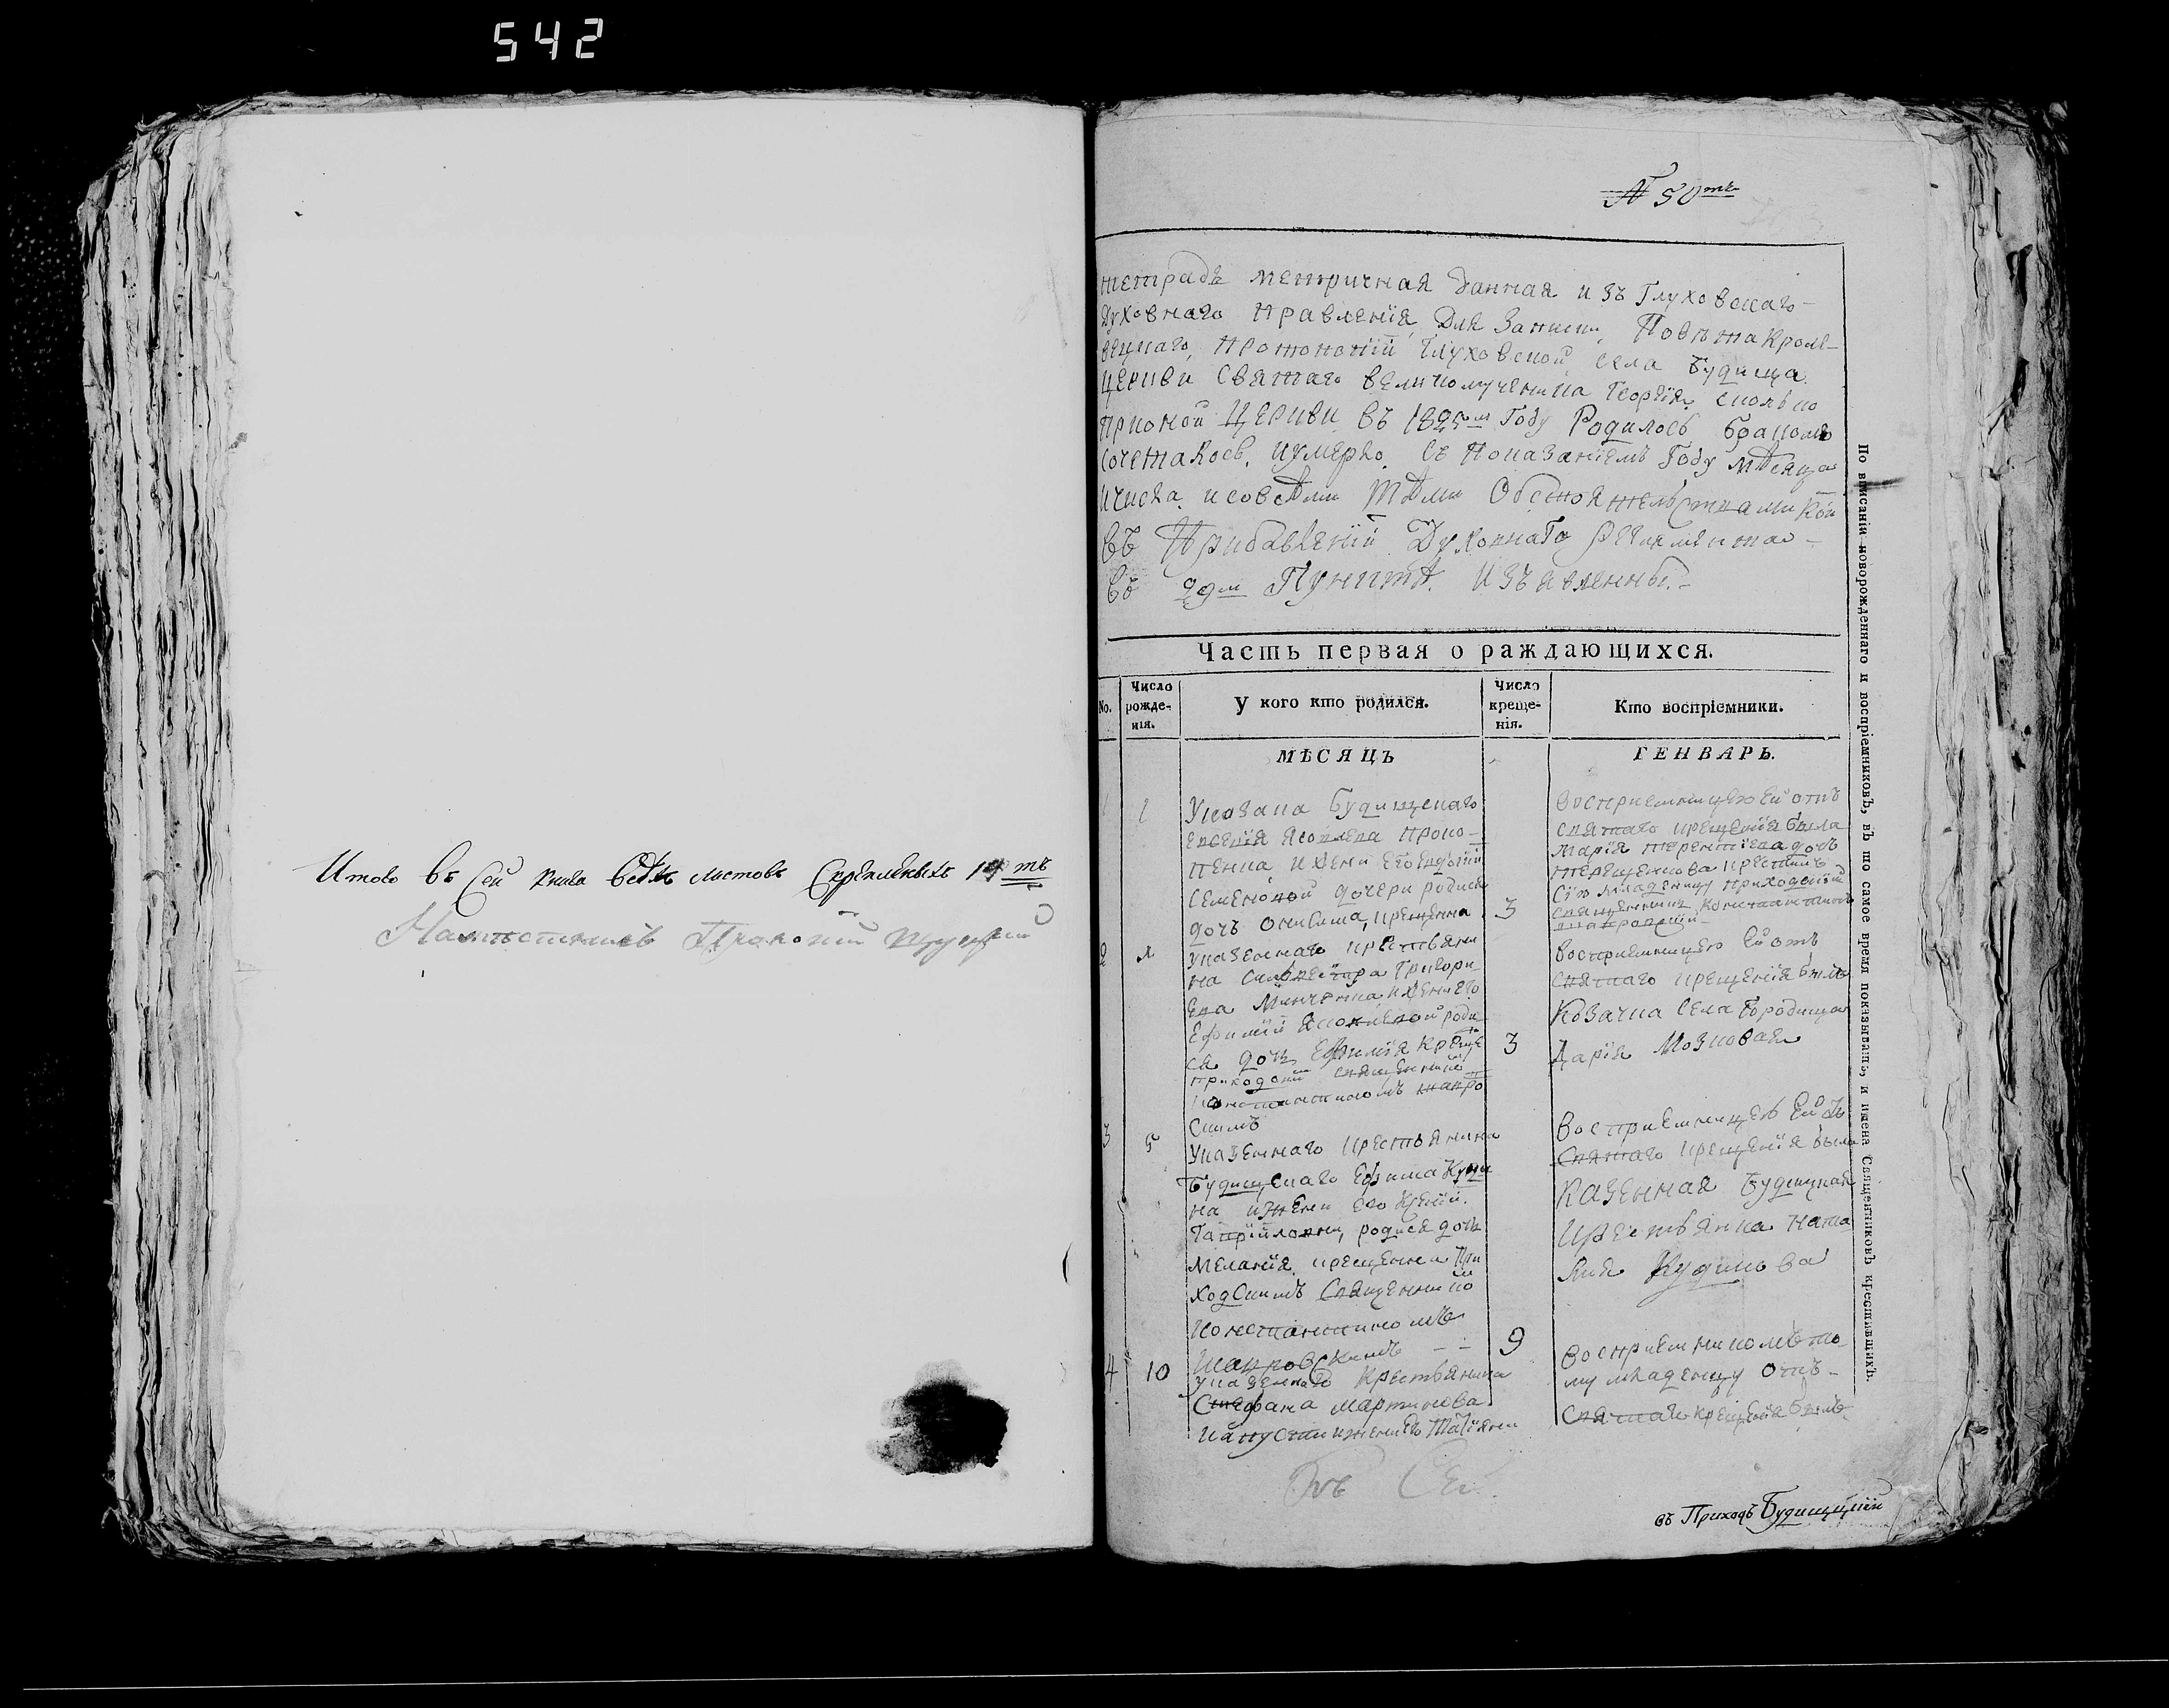 542
Итого въ сей книге всѣхъ листовъ скрепленыхъ 14 тъ
№ 50тъ
тетрадь метричная данная изъ Глуховскаго
духовнаго правленїя для записки, Повѣта Кроле-
вецкаго, протопопїи Глуховской, села Будища
церкви Святаго великомученика Георгїя, сколько
при оной церкви въ 1825м году родилось бракомъ
сочеталось, и умерло, съ показанїемъ году мѣсяца
и числа, и со всѣми тѣми обстоятельствами кои
въ прибавленїи Духовнаго Регламента
въ 29м Пунктѣ изъявленны.
Часть первая о раждающихся.
No.
Число рожде-нія.
У кого кто родился.
Число креще-нія.
Кто воспріемники.
МѢСЯЦЪ
ГЕНВАРЬ.
1
1
Указана Будищскаго
Евсенїя Яковлева Проко-
пенка и жени его Евдокїи
Семеновой дочери родися
дочь Онисима, крещенна
3
воспрїемницею ей отъ
святаго крещенїя была
Марїя Терентїева дочь
Терещенкова крестилъ
сїю младеницу приходскїй
священникъ Константинъ
2
Указеннаго крестьяни
на Сильвестра Григори
ева Минченка, и жени его
Ефимїи Яковлевой роди
ся дочь Ефимїя креще
приходскїй священнико
Константиномъ шапро
скимъ
3
воспрїемницею ей отъ
святаго крещенїя была
Козачка села Городища
Дарїя Мозковая
3
5
Указеннаго крестьянина
Будищскаго Ефима Куди
на и жени его Ксенїи
Гаврїиловни, родися дочь
Меланїя, крещенна при
ходскимъ священнико
Константиномъ
Шапровскимъ - -
9
воспрїемницею ей отъ
святаго крещенїя была
казенная Будищкая
крестьянка Ната
лия Кудинова
4
10
указеннаго крестьянина
Стефана Мартинова
Капусти и жени его Татїяни
воспрїемникомъ то
му младенцу отъ
святаго крещенїя былъ
По вписаніи новорожденнаго и воспріемниковъ, въ то самое время показывать, и имена Священниковъ крестившихъ.
въ Приходѣ Будищскїй